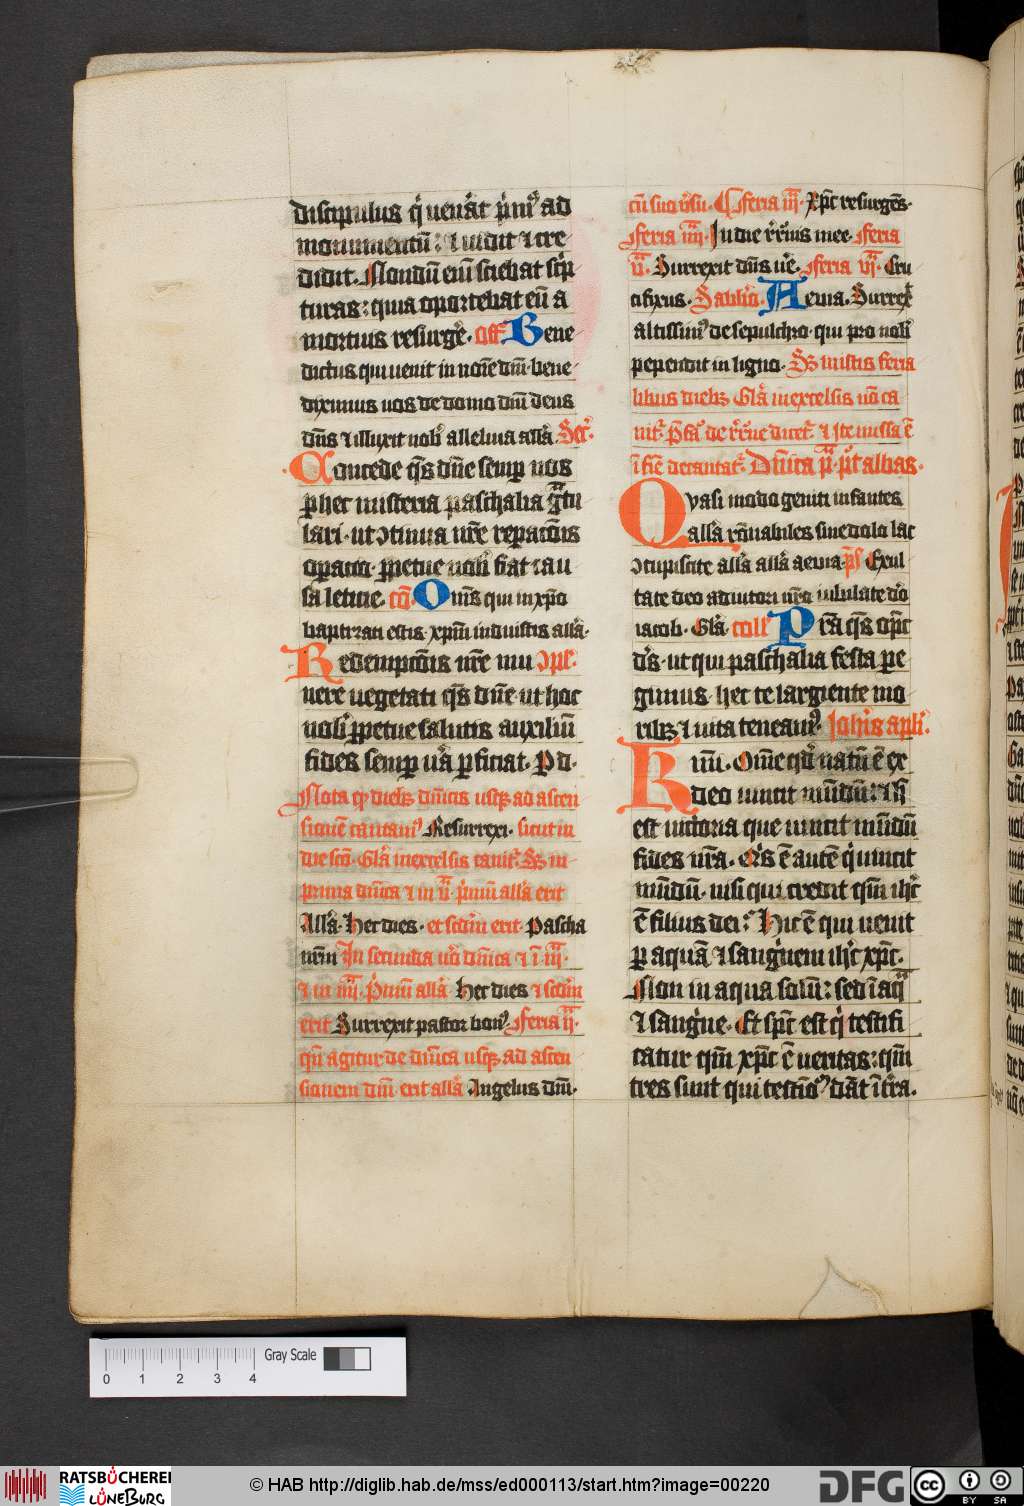 discipulus q̇ uenāt p̄mꝰ ad
monumentū: ⁊ uidit ⁊ cre
didit. Nondū enī sciebat sc̄p
turas: quia oportebat eū a
mortuis resurgē. off̄ Bene
dictus qui uenit in noīe dn̄i bene
diximus uos de domo dn̄i deus
dn̄s ⁊ illuxit nob̄ alleluia all̄a. Secr̄.
Concede qs̄ dn̄e semꝑ nos
ꝑ hec misteria paschalia gr̄tu
lari. ut ↄtinua nr̄e repacōis
oꝑatio. ꝑpetue nob̄ fiat cau
sa letitie. cō. Om̄s qui in xp̄o
baptizati estis xp̄m induistis all̄a.
Redempcōis nr̄e mu ↄpl̄.
nere uegetati qs̄ dn̄e ut hoc
nob̄ ꝑpetue salutis auxiliū
fides semꝑ u̓a ꝑficiat. P d.
Nota ꝙ dieb̄ dn̄icis usqꝫ ad ascen
sionē cantam̓ Resurrexi. sicut in
die scō. Gl̄a in excelsis canit̓. Sꝫ in
prima dn̄ica ⁊ in v̄. p̓mū all̄a erit
All̄a. Hec dies. et scd̄m erit. Pascha
nr̄m In secunda u̓o dn̄ica ⁊ ī iii.
⁊ in iiii. P̓mū all̄a Hec dies ⁊ scd̄m
erit Surrexit pastor bonꝰ. Feria ii.
qn̄ agitur de dn̄ica usqꝫ ad ascen
sionem dn̄i erit all̄a Angelus dn̄i.
cū suo v̓su. Feria iii. Xp̄c resurgēs.
Feria iiii. In die r̄r̄nis mee. Feria
v. Surrexit dn̄s ue̓. Feria vi. Cru
cifixus. Sabb̄o. Aeuia. Surrex̄
altissimꝰ de sepulchro. qui pro nob̄
pependit in ligno. Sꝫ in istis feria
libus dieb̄ꝫ Gl̄a in excelsis nō ca
nit̓. P̄fa̓ de r̄r̄ne dicet̓. ⁊ Ite missa ē
ī fīe decantat̓. Dn̄ica p̄ pꝰt albas.
Quasi modo geniti infantes
all̄a rōnabiles sine dolo lac
ↄcupiscite all̄a all̄a aeuia ps̄ Exul
tate deo adiutori nr̄o iubilate d̓o
iacob. Gl̄a. coll̄ Pr̄a qs̄ om̄p̄c
d̓s. ut qui paschalia festa pe
gimus. hec te largiente mo
ribꝫ ⁊ uita teneamꝰ. Joh̄is apl̄i.
Kmi. Om̄e qd̓ natū ē ex
deo uincit mūdū: ⁊ h̄
est uictoria que uincit mūdū
fides nr̄a. Q̓s ē autē q̇ uincit
mūdū. nisi qui credit qm̄ ih̄c
ē filius dei: Hic ē qui uenit
ꝑ aquā ⁊ sang̓uem ih̄c xp̄c.
Non in aqua solū: sed ī aq̄
⁊ sang̓ue. Et sp̄c est q̇ testifi
catur qm̄ xp̄c ē ueritas: qm̄
tres sunt qui testiōꝰ dāt ī t̓ra.
Gray Scale
0 1 2 3 4
RATSBÜCHEREI
LÜNEBURG
© HAB http://diglib.hab.de/mss/ed000113/start.htm?image=00220
DFG
cc BY SA